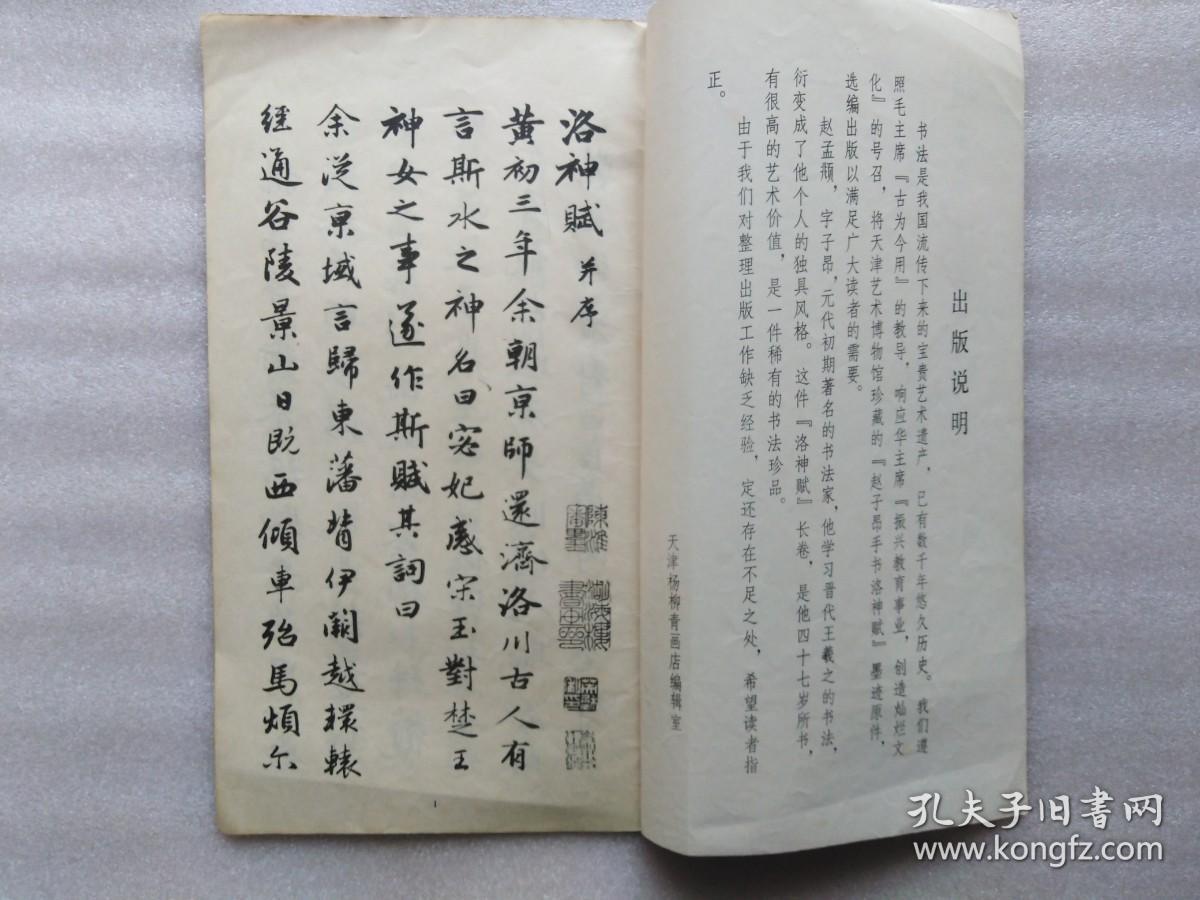 出版说明
书法是我国流传下来的宝贵艺术遗产，已有数千年悠久历史。我们遵
照毛主席『古为今用』的教导，响应华主席『振兴教育事业，创造灿烂文
化』的号召，将天津艺术博物馆珍藏的『赵子昂手书洛神赋』墨迹原件，
选编出版以满足广大读者的需要。
赵孟頫，字子昂，元代初期著名的书法家，他学习晋代王羲之的书法，
衍变成了他个人的独具风格。这件『洛神赋』长卷，是他四十七岁所书，
有很高的艺术价值，是一件稀有的书法珍品。
由于我们对整理出版工作缺乏经验，定还存在不足之处，希望读者指
正。
天津杨柳青画店编辑室
洛神賦 并序
黄初三年余朝京師還濟洛川古人有
言斯水之神名曰宓妃感宋玉對楚王
神女之事遂作斯賦其詞曰
余從京域言歸東藩背伊闕越轘轅
經通谷陵景山日既西傾車殆馬煩尔
1
孔夫子旧书网
www.kongfz.com